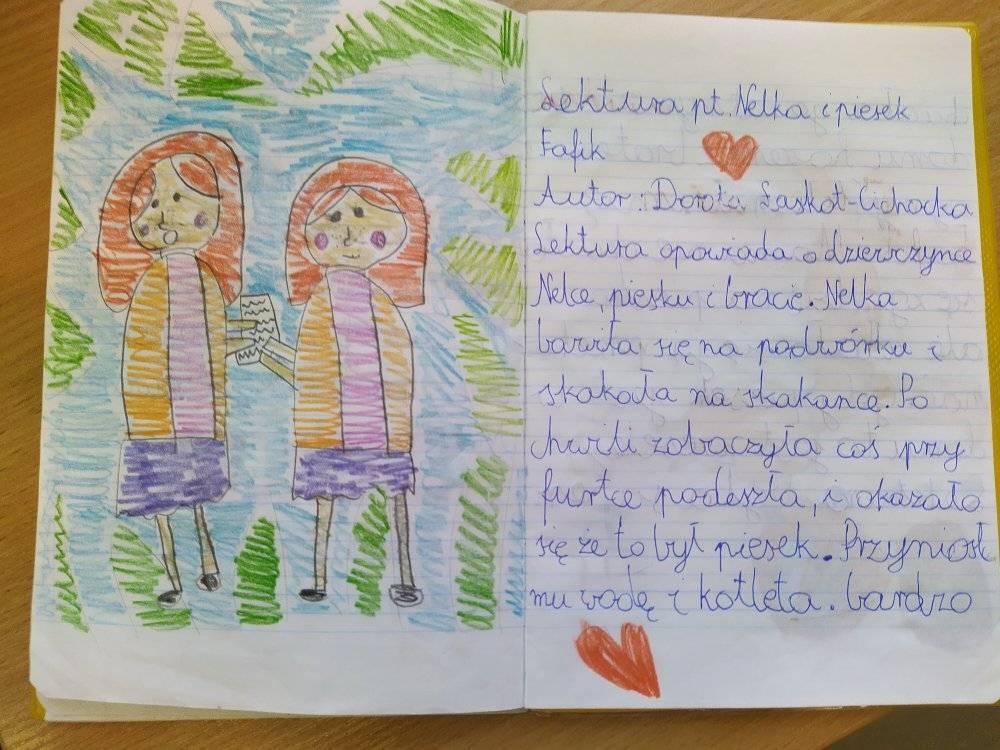 Lektura pt. Nelka i piesek
Fafik
Autor: Dorota Łaskot-Cichocka
Lektura opowiada o dziewczynce
Nelce, piesku i bracie. Nelka
bawiła się na podwórku i
skakała na skakance. Po
chwili zobaczyła coś przy
furtce podeszła, i okazało
się że to był piesek. Przyniosł
mu wodę i kotleta. bardzo